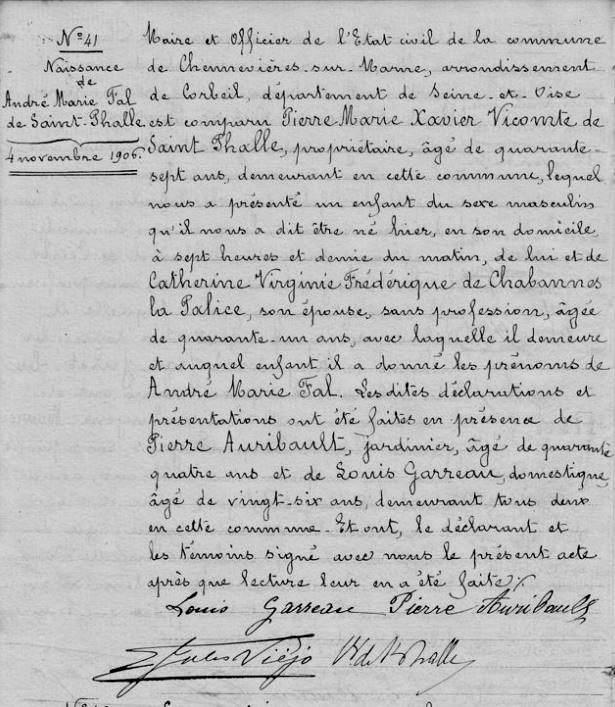 N° 41
Naissance
de
André Marie Fal
de Saint-Phalle
4 novembre 1906.
Maire et Officier de l'Etat civil de la commune
de Chennevières-sur-Marne, arrondissement
de Corbeil, département de Seine-et-Oise
est comparu Pierre Marie Xavier Vicomte de
Saint Phalle, propriétaire, âgé de quarante-
sept ans, demeurant en cette commune, lequel
nous a présenté un enfant du sexe masculin
qu'il nous a dit être né hier, en son domicile,
à sept heures et demie du matin, de lui et de
Catherine Virginie Frédérique de Chabannes
la Palice, son épouse, sans profession, âgée
de quarante-un ans, avec laquelle il demeure
et auquel enfant il a donné les prénoms de
André Marie Fal. Les dites déclarations et
présentations ont été faites en présence de
Pierre Auribault, jardinier, âgé de quarante
quatre ans et de Louis Garreau, domestique,
âgé de vingt-six ans, demeurant tous deux
en cette commune. Et ont, le déclarant et
les témoins signé avec nous le présent acte
après que lecture leur en a été faite
Louis Garreau Pierre Auribault
Jules Viéjo Vte de St Phalle